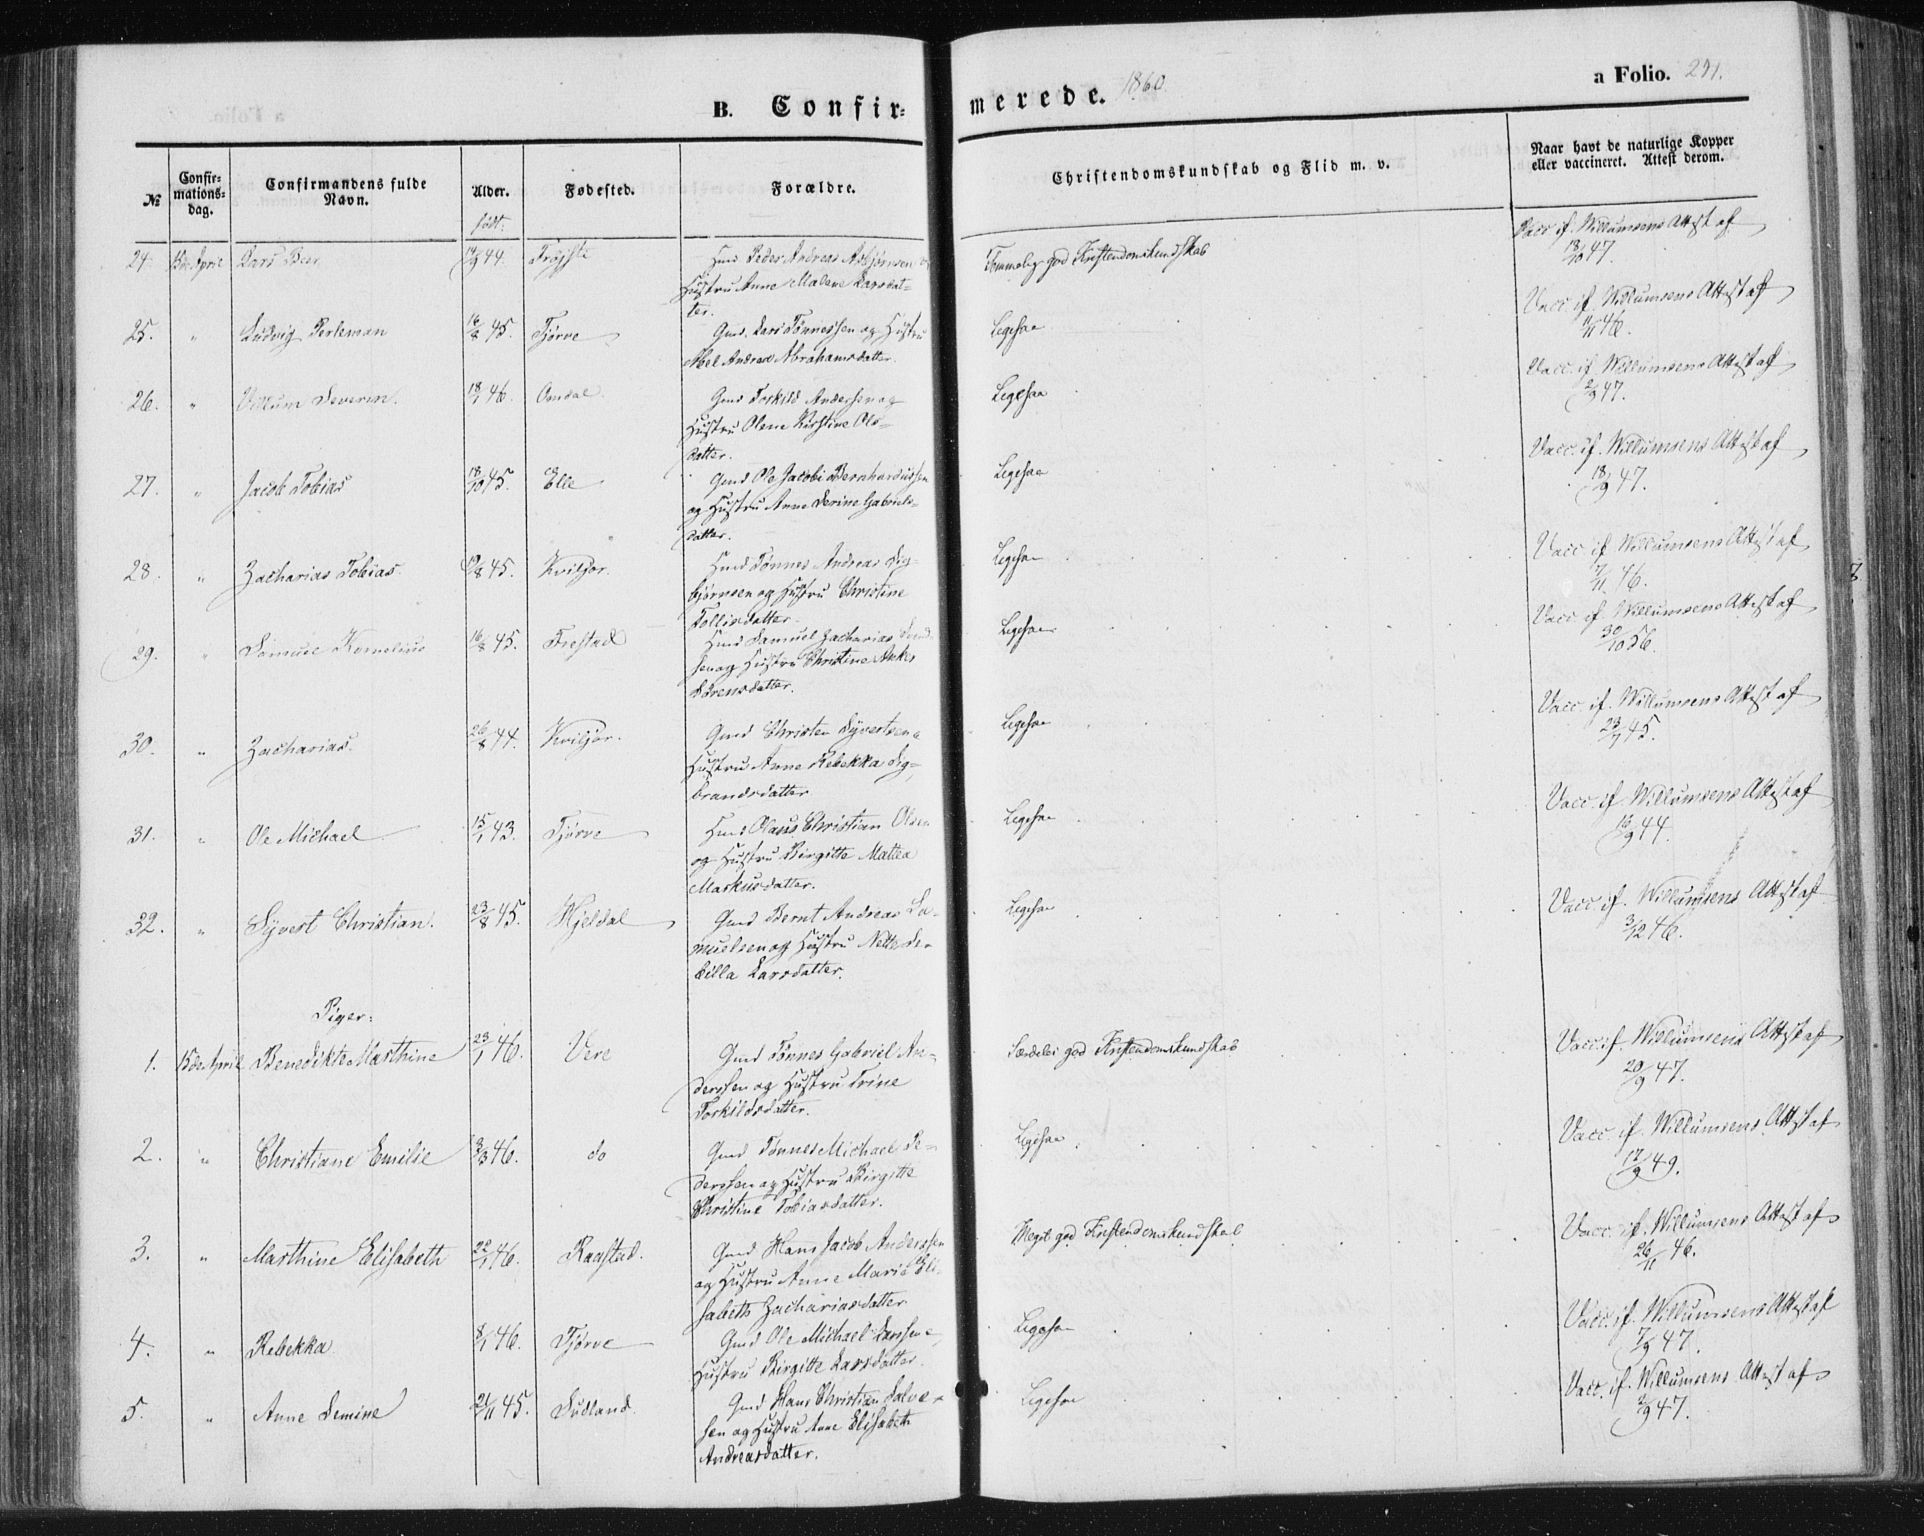 B. Confir=
merede. 1860.
a Folio. 291.
№
Confir=
mations=
dag.
Confirmandens fulde
Navn.
Alder.
født.
Fødested.
Forældre.
Christendomskundskab og Flid m. v.
Naar havt de naturlige Kopper
eller vaccineret. Attest derom.
24. 15de April Lars Beer 44.
Huus Peder Andreas Asbjørnsen og
Hustru Anne Malene Larsdat=
ter.
Temmelig god Kristendomskundskab
Vacc. if. Willumsens Attest af
47.
25. " Ludvig Perleman 16/8 45. Tjørve
Gmd. Lars Tønnessen og Hustru
Abel Andrea Abrahamsdatter.
Ligesaa
Vacc. if. Willumsens Attest af
46.
26. " Villum Severin. 18/1 46. Omdal
Gmd Torkild Andersen og
Hustru Olene Kirstine Ols=
datter.
Ligesaa
Vacc. if. Willumsens Attest af
2/9 47.
27. " Jacob Tobias 18/10 45. Elle
Gmd Ole Jacobi Bernhardussen
og Hustru Anne Serine Gabriels=
datter.
Ligesaa
Vacc. if. Willumsens Attest af
18/9 47.
28. " Zacharias Tobias. 45. Kviljor.
Huus Tønnes Andreas Sig=
bjørnsen og Hustru Christine
Tollisdatter.
Ligesaa
Vacc. if. Willumsens Attest af
7/11 46.
29. " Samuel Kornelius 16/8 45. Frestad
Huus Samuel Zacharias
sen og Hustru Christine
Sørensdatter.
Ligesaa
Vacc. if. Willumsens Attest af
30/10 56.
30. " Zacharias. 26/8 44. Kviljor.
Gmd Christen Syvertsen o
Hustru Anne Rebekka Sig=
brandsdatter
Ligesaa
Vacc. if. Willumsens Attest af
45.
31. " Ole Michael 15/1 43. Tjørve
Huus Olaus Christian Olsen
og Hustru Birgitte Mattea
Markusdatter.
Ligesaa
Vacc. if. Willumsens Attest af
16/9 44.
32. " Syvert Christian. 23/8 45. Hjeldal
Gmd Bernt Andreas Sa=
muelsen og Hustru Nette Se=
cilla Larsdatter.
Ligesaa
Vacc. if. Willumsens Attest af
3/12 46.
Piger:
1. 15de April Benedikte Marthine 23/1 46. Vere
Gmd Tønnes Gabriel An=
derssen og Hustru Trine
Torkildsdatter.
Særdeles god Kristendomskundskab
Vacc. if. Willumsens Attest af
20/9 47.
2. " Christiane Emilie 3/3 46. do
Gmd Tønnes Michael Pe=
derssen og Hustru Birgitte
Christine Tobiasdatter.
Ligesaa
Vacc. if. Willumsens Attest af
17/9 49.
3. " Marthine Elisabeth 22/1 46. Raastad.
Gmd Hans Jacob Anderssen
og Hustru Anne Marie Eli=
sabeth Zachariasdatter
Meget god Kristendomskundskab
Vacc. if. Willumsens Attest af
26/11 46.
4. " Rebekka 8/1 46. Tjørve
Gmd Ole Michael Larssen o
Hustru Birgitte Larsdatter.
Ligesaa
Vacc. if. Willumsens Attest af
7/9 47.
5. " Anne Semine 21/11 45. Sudland.
Gmd Hans Christian Salve=
sen og Hustru Anne Elisabeth
Andreasdatter.
Ligesaa
Vacc. if. Willumsens Attest af
2/9 47.